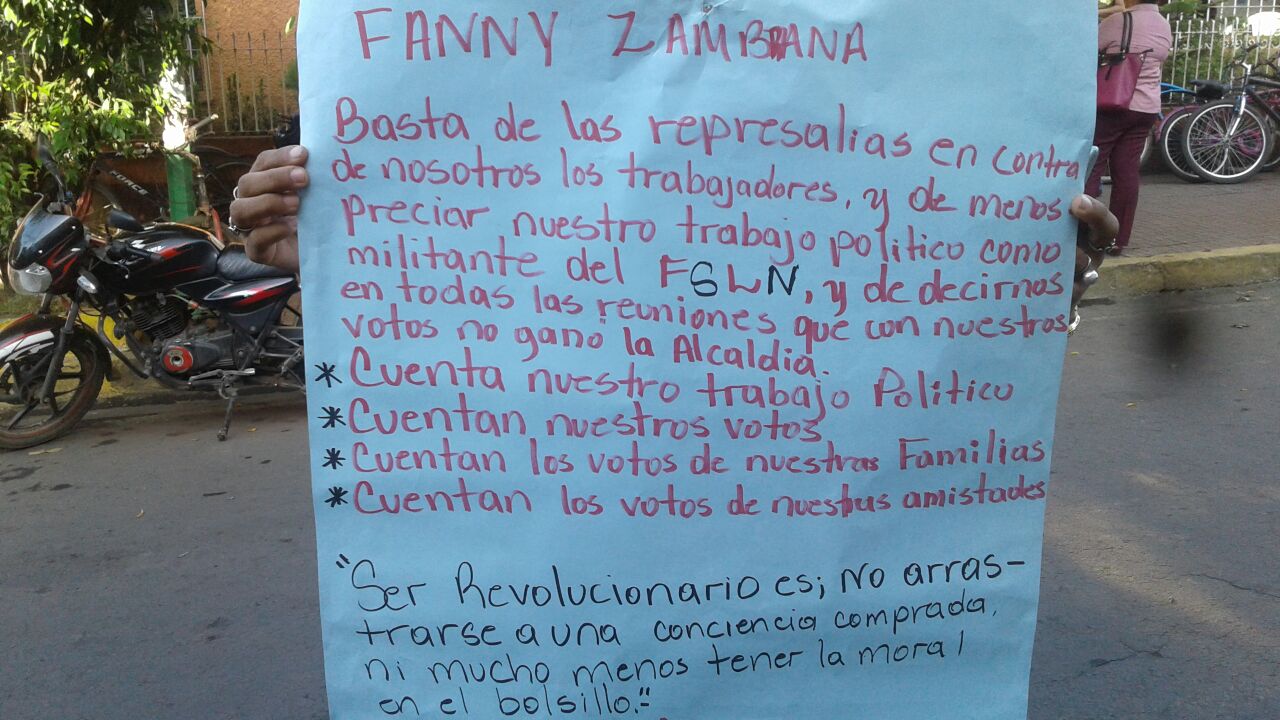 FANNY ZAMBRANA
Basta de las represalias en contra
de nosotros los trabajadores, y de menos
preciar nuestro trabajo politico como
militante del FSLN, y de decirnos
en todas las reuniones que con nuestros
votos no gano la Alcaldia.
* Cuenta nuestro trabajo Politico
* Cuentan nuestros votos
* Cuentan los votos de nuestras Familias
* Cuentan los votos de nuestras amistades
"Ser Revolucionario es; No arras-
trarse a una conciencia comprada,
ni mucho menos tener la moral
en el bolsillo."
FORCE